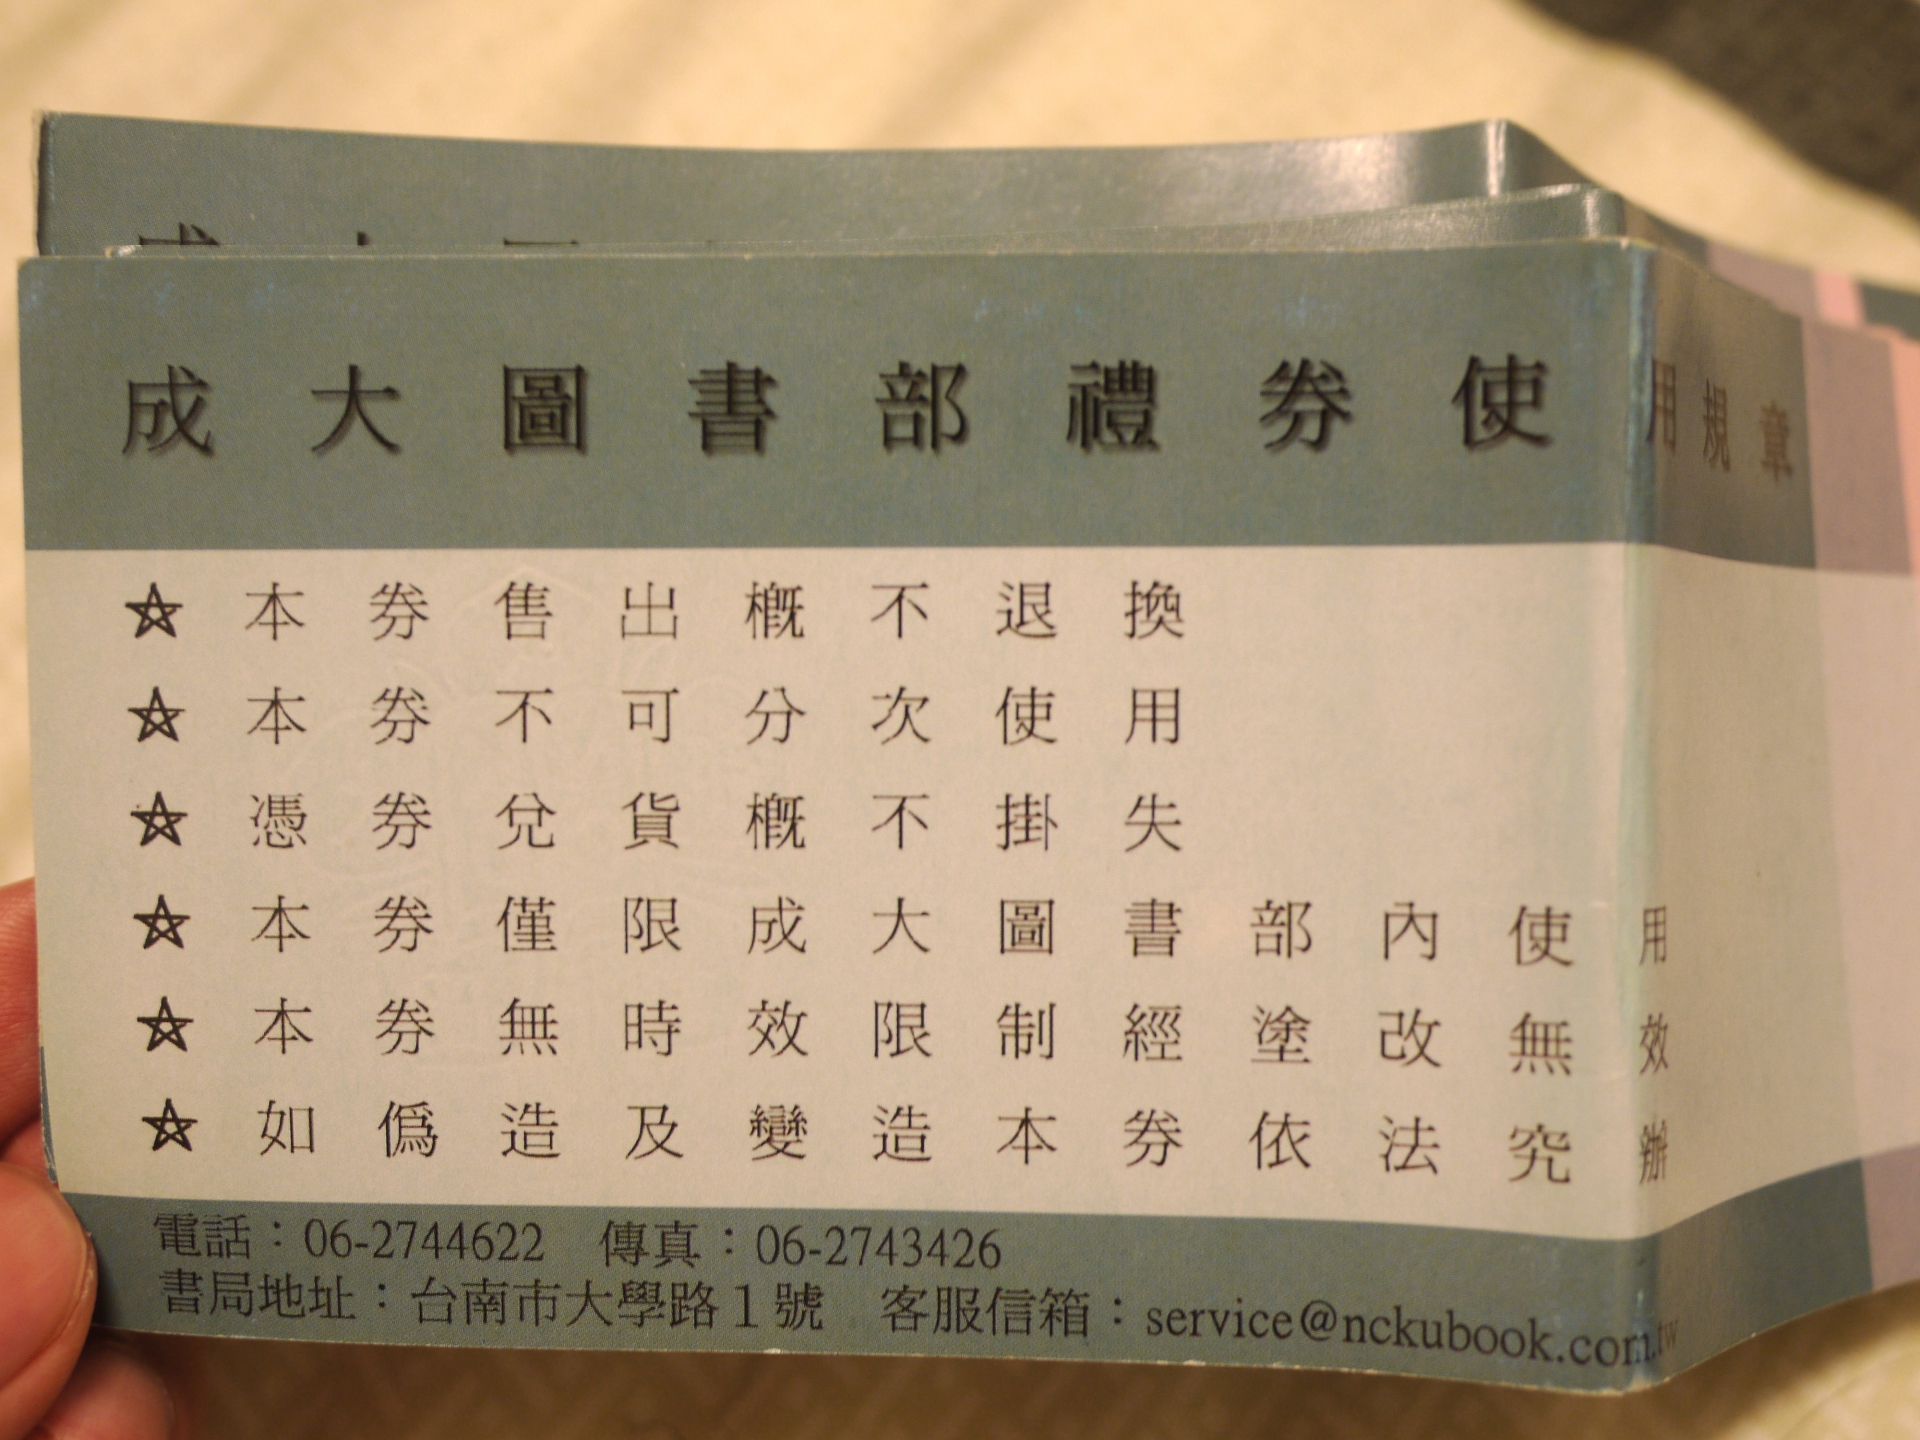 成大圖書部禮券使用規章
☆本券售出概不退換
☆本券不可分次使用
☆憑券兌貨概不掛失
☆本券僅限成大圖書部內使用
☆本券無時效限制經塗改無效
☆如偽造及變造本券依法究辦
電話：06-2744622 傳真：06-2743426
書局地址：台南市大學路1號 客服信箱：service@nckubook.com.tw